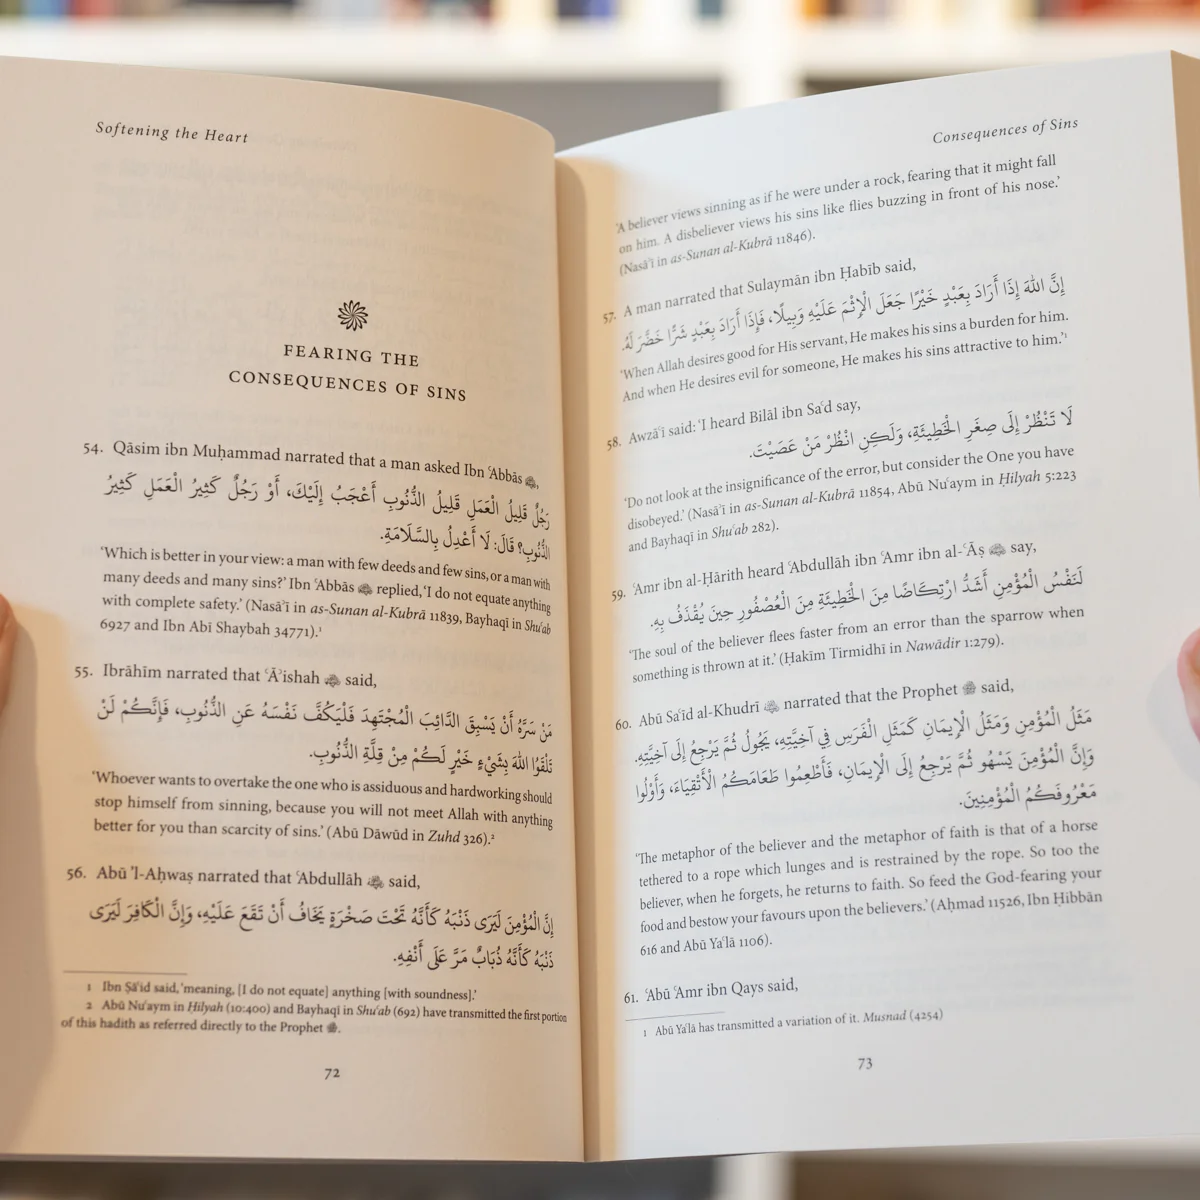 Softening the Heart
FEARING THE
CONSEQUENCES OF SINS
54. Qāsim ibn Muḥammad narrated that a man asked Ibn ʿAbbās ,
رَجُلٌ قَلِيلُ الْعَمَلِ قَلِيلُ الذُّنُوبِ أَعْجَبُ إِلَيْكَ، أَوْ رَجُلٌ كَثِيرُ الْعَمَلِ كَثِيرُ
الذُّنُوبِ؟ قَالَ: لَا أَعْدِلُ بِالسَّلَامَةِ.
‘Which is better in your view: a man with few deeds and few sins, or a man with
many deeds and many sins?’ Ibn ʿAbbās replied, ‘I do not equate anything
with complete safety.’ (Nasāʾī in as-Sunan al-Kubrā 11839, Bayhaqī in Shuʿab
6927 and Ibn Abī Shaybah 34771).¹
55. Ibrāhīm narrated that ʿĀʾishah said,
مَنْ سَرَّهُ أَنْ يَسْبِقَ الدَّائِبَ الْمُجْتَهِدَ فَلْيَكُفَّ نَفْسَهُ عَنِ الذُّنُوبِ، فَإِنَّكُمْ لَنْ
تَلْقَوُا اللهَ بِشَيْءٍ خَيْرٍ لَكُمْ مِنْ قِلَّةِ الذُّنُوبِ.
‘Whoever wants to overtake the one who is assiduous and hardworking should
stop himself from sinning, because you will not meet Allah with anything
better for you than scarcity of sins.’ (Abū Dāwūd in Zuhd 326).²
56. Abū ’l-Aḥwaṣ narrated that ʿAbdullāh said,
إِنَّ الْمُؤْمِنَ لَيَرَى ذَنْبَهُ كَأَنَّهُ تَحْتَ صَخْرَةٍ يَخَافُ أَنْ تَقَعَ عَلَيْهِ، وَإِنَّ الْكَافِرَ لَيَرَى
ذَنْبَهُ كَأَنَّهُ ذُبَابٌ مَرَّ عَلَى أَنْفِهِ.
1 Ibn Ṣāʿid said, ‘meaning, [I do not equate] anything [with soundness].’
2 Abū Nuʿaym in Ḥilyah (10:400) and Bayhaqī in Shuʿab (692) have transmitted the first portion
of this hadith as referred directly to the Prophet .
72
Consequences of Sins
‘A believer views sinning as if he were under a rock, fearing that it might fall
on him. A disbeliever views his sins like flies buzzing in front of his nose.’
(Nasāʾī in as-Sunan al-Kubrā 11846).
57. A man narrated that Sulaymān ibn Ḥabīb said,
إِنَّ اللهَ إِذَا أَرَادَ بِعَبْدٍ خَيْرًا جَعَلَ الْإِثْمَ عَلَيْهِ وَبِيلًا، فَإِذَا أَرَادَ بِعَبْدٍ شَرًّا خَضَّرَ لَهُ.
‘When Allah desires good for His servant, He makes his sins a burden for him.
And when He desires evil for someone, He makes his sins attractive to him.’¹
58. Awzāʿī said: ‘I heard Bilāl ibn Saʿd say,
لَا تَنْظُرْ إِلَى صِغَرِ الْخَطِيئَةِ، وَلَكِنِ انْظُرْ مَنْ عَصَيْتَ.
‘Do not look at the insignificance of the error, but consider the One you have
disobeyed.’ (Nasāʾī in as-Sunan al-Kubrā 11854, Abū Nuʿaym in Ḥilyah 5:223
and Bayhaqī in Shuʿab 282).
59. ʿAmr ibn al-Ḥārith heard ʿAbdullāh ibn ʿAmr ibn al-ʿĀṣ say,
لَنَفْسُ الْمُؤْمِنِ أَشَدُّ ارْتِكَاضًا مِنَ الْخَطِيئَةِ مِنَ الْعُصْفُورِ حِينَ يُقْذَفُ بِهِ.
‘The soul of the believer flees faster from an error than the sparrow when
something is thrown at it.’ (Ḥakīm Tirmidhī in Nawādir 1:279).
60. Abū Saʿīd al-Khudrī narrated that the Prophet said,
مَثَلُ الْمُؤْمِنِ وَمَثَلُ الْإِيمَانِ كَمَثَلِ الْفَرَسِ فِي آخِيَّتِهِ، يَجُولُ ثُمَّ يَرْجِعُ إِلَى آخِيَّتِهِ.
وَإِنَّ الْمُؤْمِنَ يَسْهُو ثُمَّ يَرْجِعُ إِلَى الْإِيمَانِ، فَأَطْعِمُوا طَعَامَكُمُ الْأَتْقِيَاءَ، وَأَوْلُوا
مَعْرُوفَكُمُ الْمُؤْمِنِينَ.
‘The metaphor of the believer and the metaphor of faith is that of a horse
tethered to a rope which lunges and is restrained by the rope. So too the
believer, when he forgets, he returns to faith. So feed the God-fearing your
food and bestow your favours upon the believers.’ (Aḥmad 11526, Ibn Ḥibbān
616 and Abū Yaʿlā 1106).
61. ʿAbū ʿAmr ibn Qays said,
1 Abū Yaʿlā has transmitted a variation of it. Musnad (4254)
73